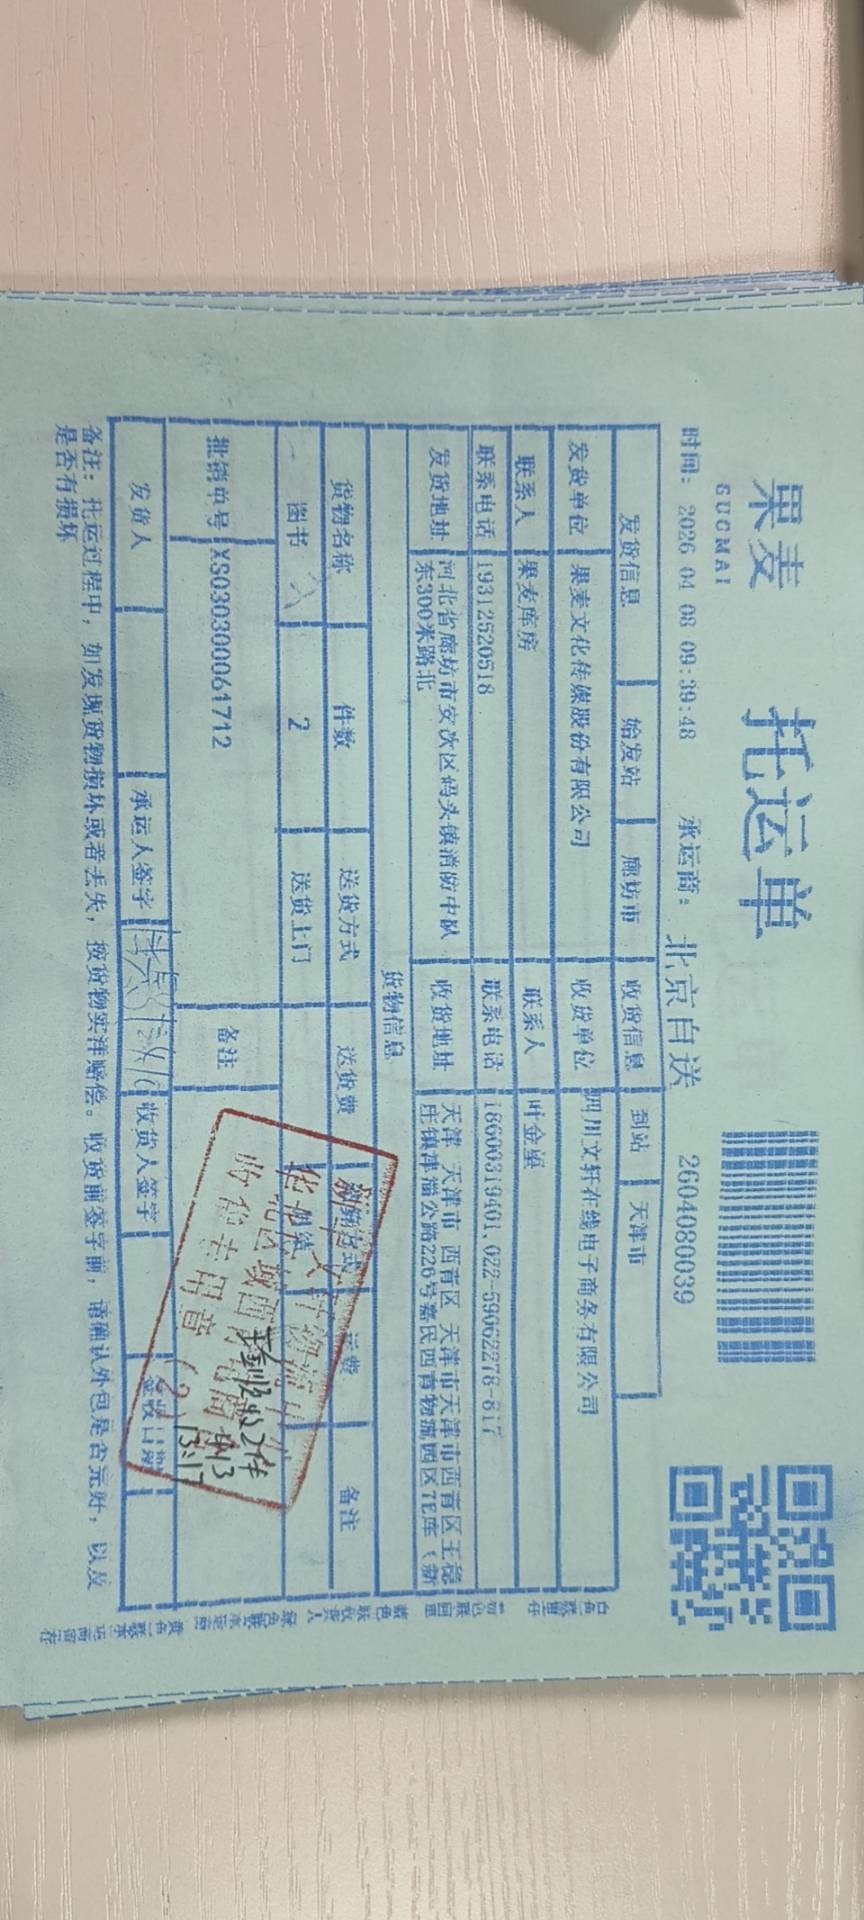 果麦
GUOMAI
托运单
时间: 2026 04 08 09:39:48 承运商: 北京自送 2604080039
发货信息 始发站 廊坊市 收货信息 到站 天津市
发货单位 果麦文化传媒股份有限公司 收货单位 四川文轩在线电子商务有限公司
联系人 果麦库房 联系人 叶金重
联系电话 19312520518 联系电话 18600319401、022-59062278-817
发货地址 河北省廊坊市安次区码头镇消防中队
东300米路北
收货地址 天津 天津市 西青区 天津市天津市西青区王稳
庄镇津淄公路226号嘉民西青物流园区7E库（新
货物信息
货物名称 件数 送货方式 送货费 运费 备注
图书 2 送货上门
批销单号 XS030300061712 备注
收货专用章
(2)
实收2件
4.13
13:17
发货人 承运人签字 收货人签字 签收日期
备注: 托运过程中，如发现货物损坏或者丢失，按货物实洋赔偿。收货前签字前，请确认外包是否完好，以及
是否有损坏